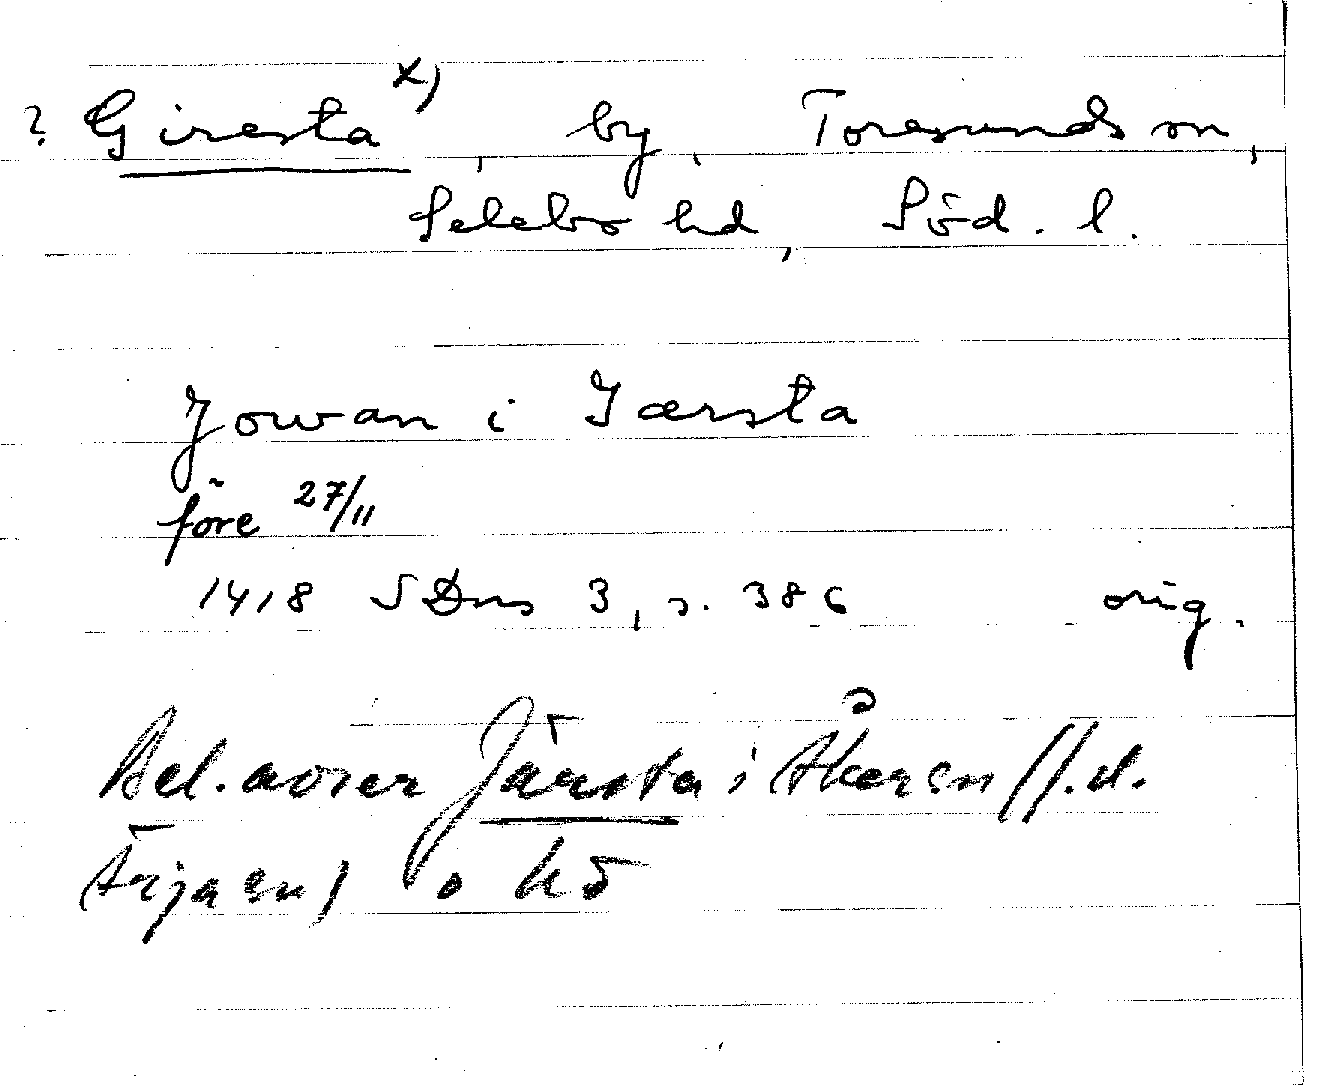 ? Giresta x), by, Toresunds sn,
Selebo hd, Söd. l.
Jowan i Iærsta
före 27/11
1418 SDns 3, s. 386 orig.
Bel. avser Järsta i Åkers sn (f.d.
Ärja sn) o hd